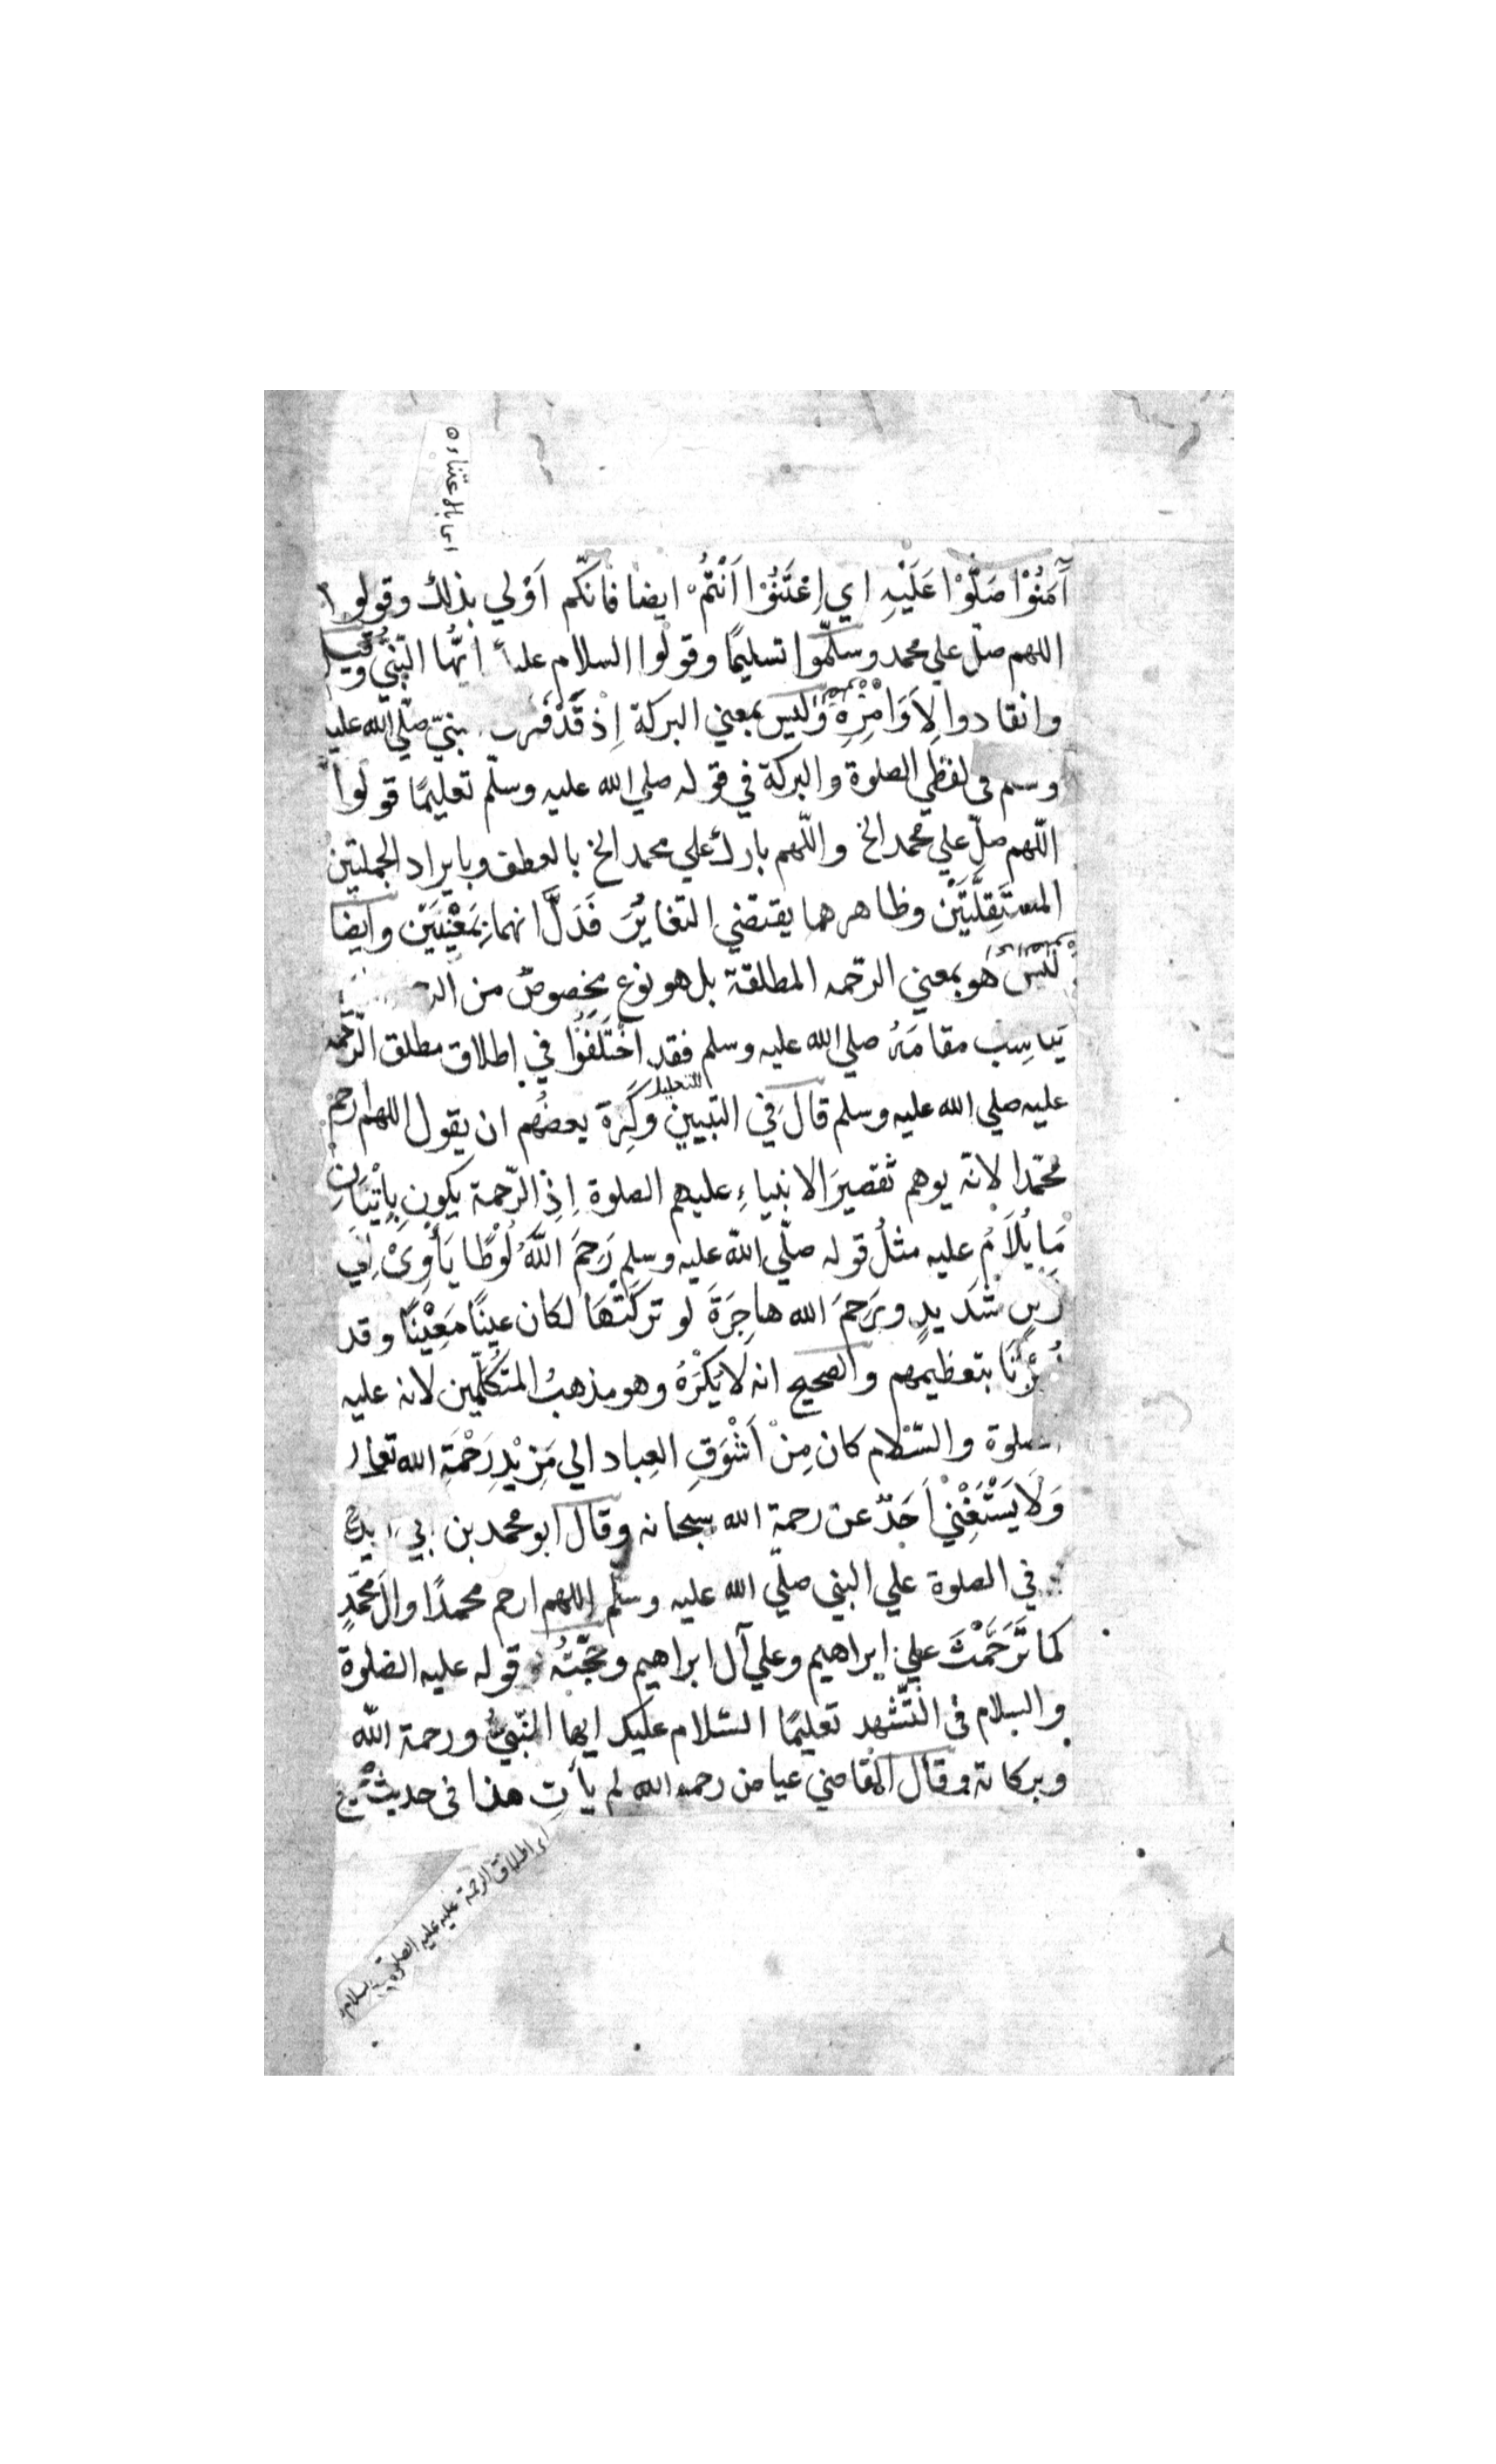 اى بالاعتناء
آمَنُوْا صَلُّوْا عَلَيْهِ اي اِعْتَنُوْا اَنْتُمْ ايضا فانكّم اَوْلي بذلك وقولوا
اللهم صلّ علي محمد وسلّموا تسليمًا وقولوا السلام عليك ايّها النّبيّ وقيل
وانقادوا لِاَوَامْرِهِ وليس بمعني البركة اِذْ قَدْ صلّي الله عليه
وسلم في لفظي الصلوة والبركة في قوله صلي الله عليه وسلّم تعليمًا قولوا
اللّهم صلّ علي محمد الخ واللّهم بارك علي محمد الخ بالعطف وبايراد الجملتين
المستَقِلَّتَيْن وظاهرهما يقتضي التغايُرَ فَدَلَّ انهما بمَعْنَيَيْن وايضا
ليس هُو بمعني الرحمه المطلقة بل هو نوع مخصوصٌ من
يناسِب مقامَهُ صلي الله عليه وسلم فقد اخْتَلَفُوْا في اطلاق مطلق الرّحمه
عليه صلي الله عليه وسلم قالَ في التبيين وكَرِهَ بعضُهم ان يقول اللهم ارحم
محمّدا لانّه يوهم تقصيرَ الانبياءِ عليهم الصلوة اِذِ الرّحمة يكون بِاِتْيَانِ
مَا يُلَامُ عليه مثلُ قوله صلّي الله عليه وسلم رَحِمَ اللّٰهُ لُوْطًا يَأوِيْ اِلي
ركن شديدٍ ويَرحمَ الله هاجِرَةَ لو تركَتْهَا لكان عينًا مَعِيْنًا وقد
اُمِرْنَا بتعظيمهم والصحيح انه لايُكْرَهُ وهو مذهبُ المتكلّمين لانه عليه
الصلوة والسّلام كان مِنْ اَشْوَقِ العِباد الي مَزِيْدِ رَحْمَةِ الله تعالى
وَلَا يَسْتَغْنِيْ اَحَدٌ عن رحمة الله سبحانه وقال ابو محمد بن ابي زيد
في الصلوة علي النبي صلّي الله عليه وسلّم اللهم ارحم محمدًا وآل محمّدٍ
كما تَرَحَّمْتَ علي ابراهيم وعلي آل ابراهيم وحُجّتُهُ قوله عليه الصلوة
والسلام في التّشهد تعليمًا السّلام عليك ايها النّبيُّ ورحمة الله
وبركاته وقال القاضي عياض رحمه الله لم يأت هذا في حديث
اى اطلاق الرحمة عليه عليه الصلوة والسلام